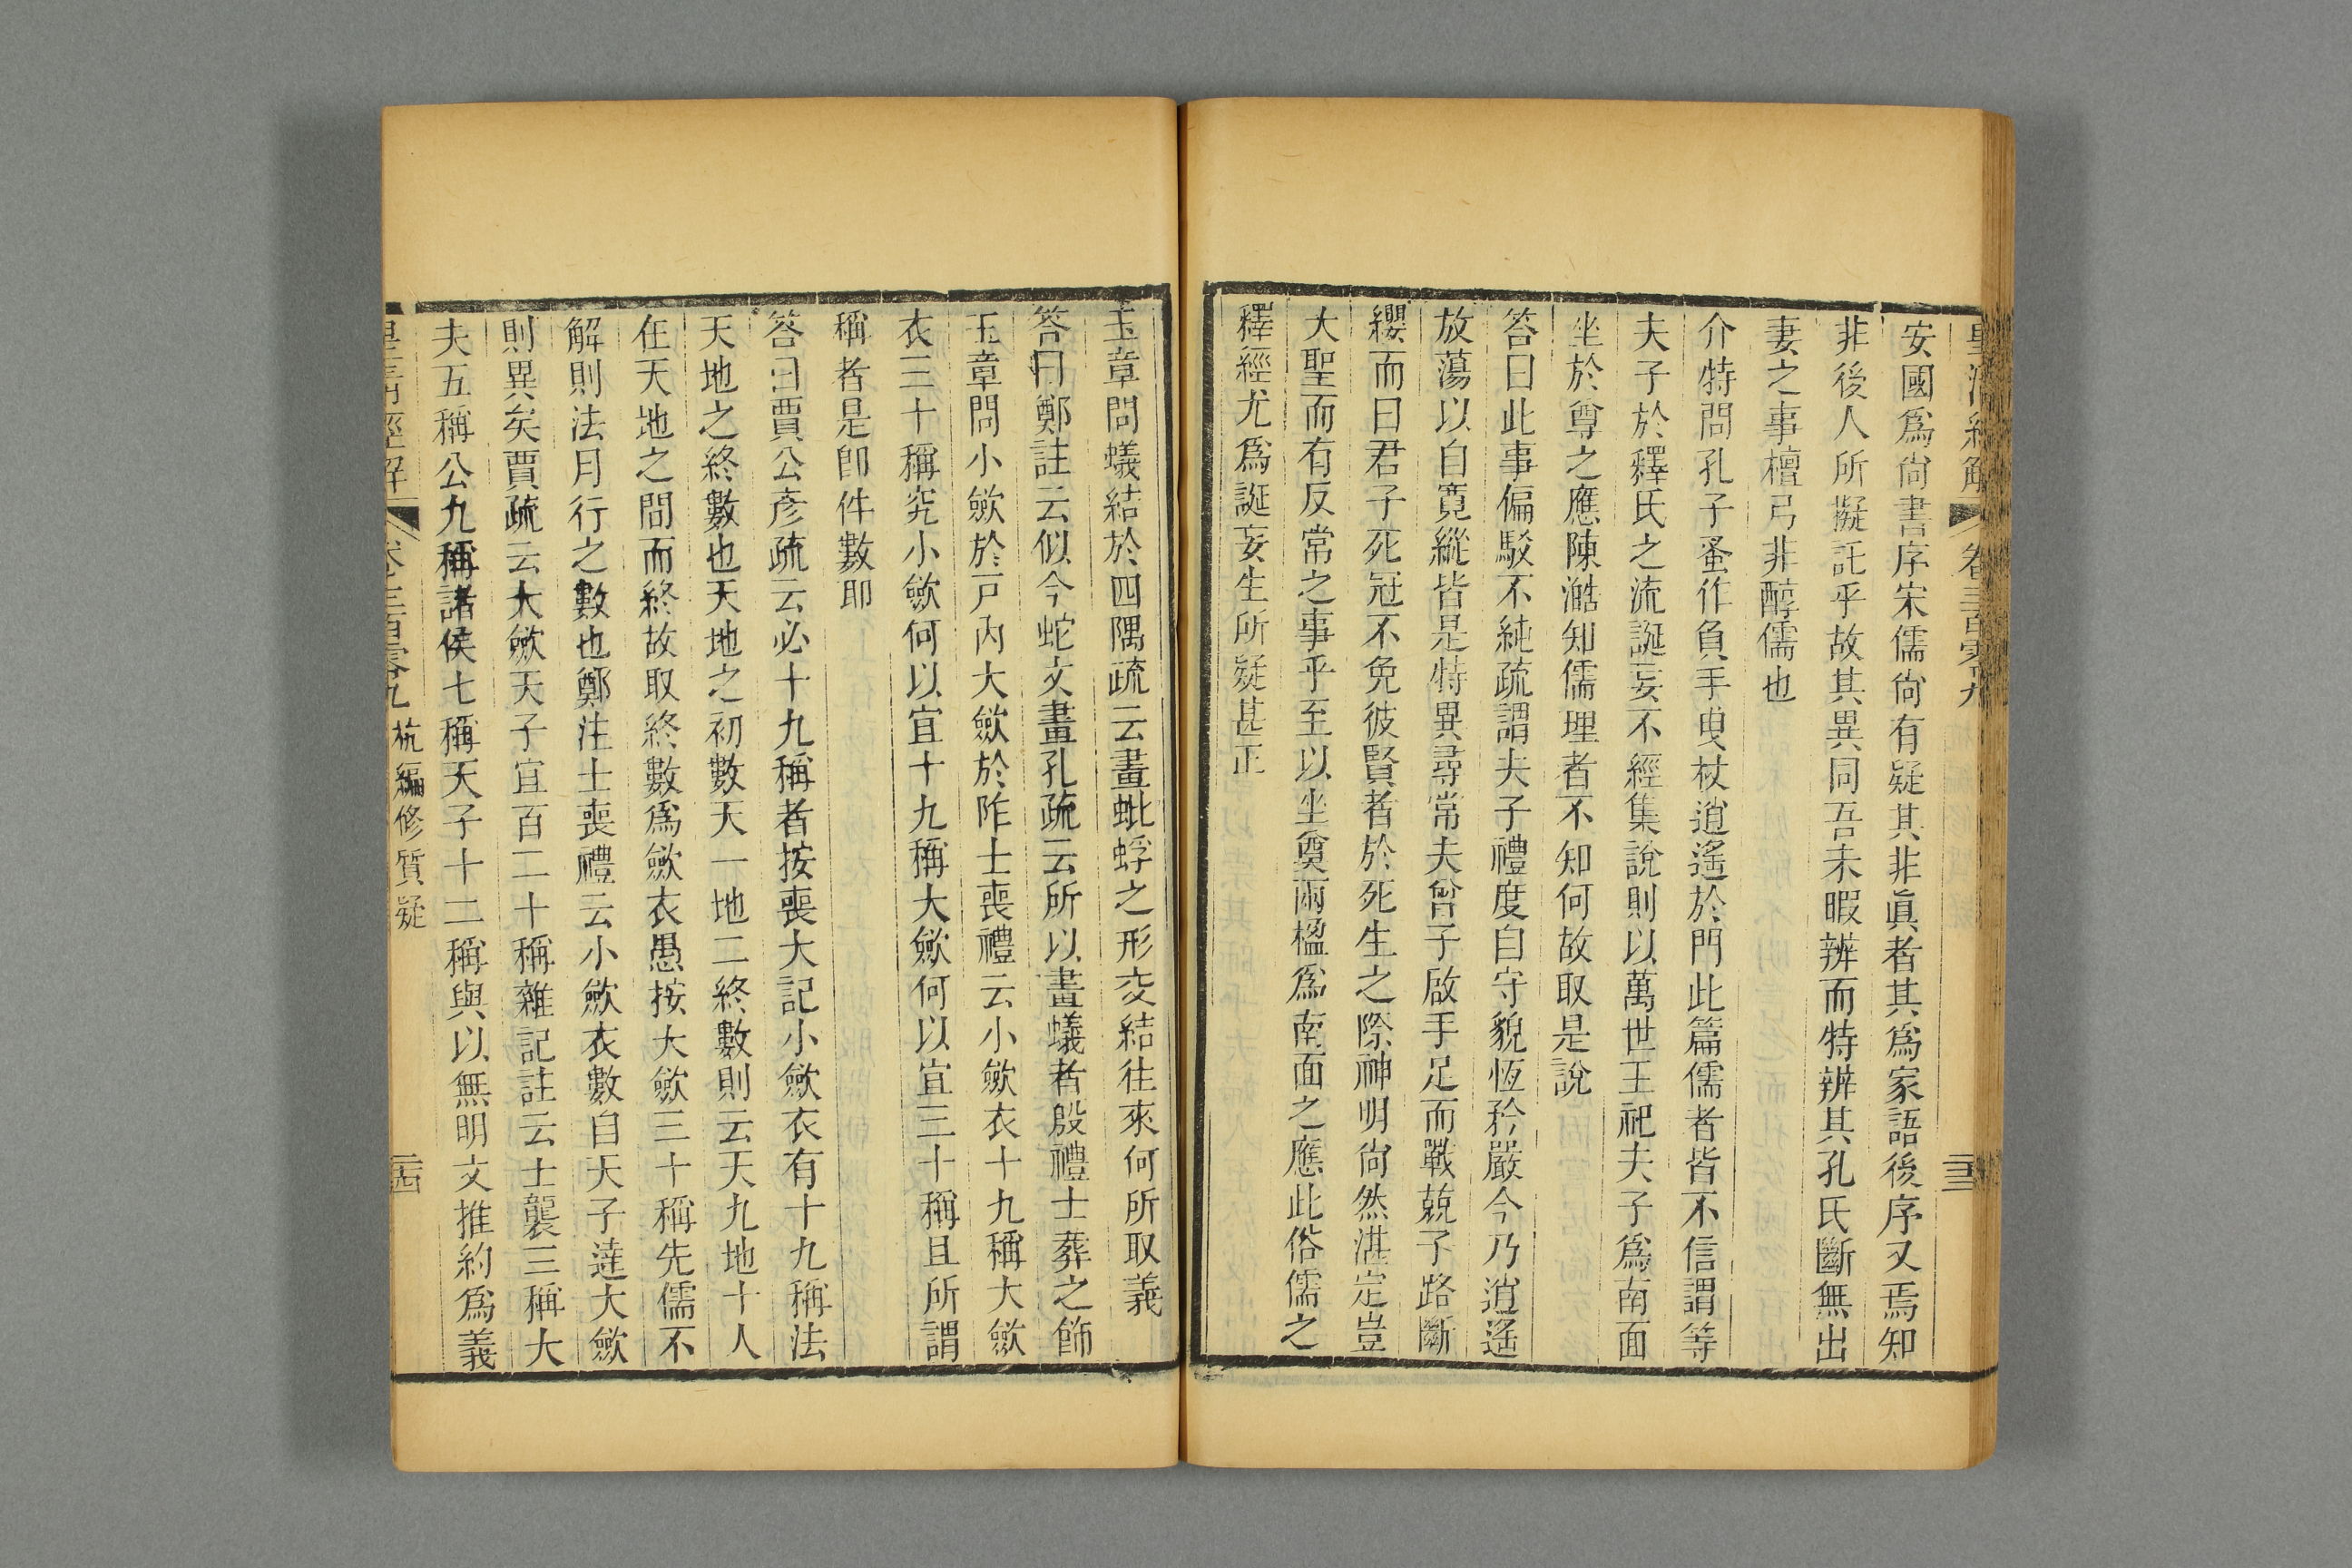 皇清經解 卷三百零九 三三
安國爲尚書序宋儒尚有疑其非眞者其爲家語後序又焉知
非後人所擬託乎故其異同吾未暇辨而特辨其孔氏斷無出
妻之事檀弓非醇儒也
介特問孔子蚤作負手曳杖逍遙於門此篇儒者皆不信謂等
夫子於釋氏之流誕妄不經集說則以萬世王祀夫子爲南面
坐於尊之應陳澔知儒理者不知何故取是說
答曰此事偏駁不純疏謂夫子禮度自守貌恆矜嚴今乃逍遙
放蕩以自寬縱皆是特異尋常夫曾子啟手足而戰兢子路斷
纓而曰君子死冠不免彼賢者於死生之際神明尚然湛定豈
大聖而有反常之事乎至以坐奠兩楹爲南面之應此俗儒之
釋經尤爲誕妄生所疑甚正
玉章問蟻結於四隅疏云畫蚍蜉之形交結往來何所取義
答曰鄭註云似今蛇文畫孔疏云所以畫蟻者殷禮士葬之飾
玉章問小斂於戸內大斂於阼士喪禮云小斂衣十九稱大斂
衣三十稱究小斂何以宜十九稱大斂何以宜三十稱且所謂
稱者是卽件數耶
答曰賈公彥疏云必十九稱者按喪大記小斂衣有十九稱法
天地之終數也天地之初數天一地二終數則云天九地十人
在天地之間而終故取終數爲斂衣愚按大斂三十稱先儒不
解則法月行之數也鄭注士喪禮云小斂衣數自天子達大斂
則異矣賈疏云大斂天子宜百二十稱雜記註云士襲三稱大
夫五稱公九稱諸侯七稱天子十二稱與以無明文推約爲義
皇清經解 卷三百零九 杭編修質疑 三四